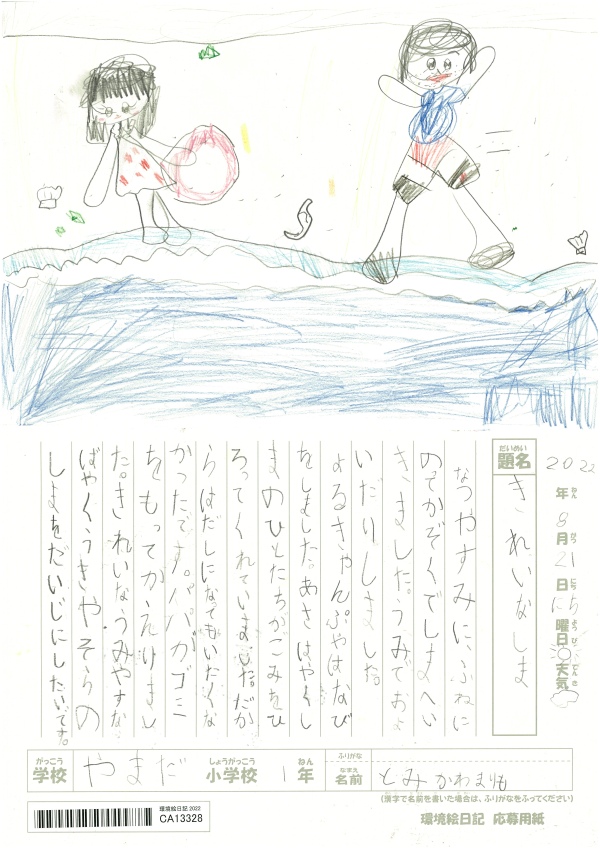 2022年ねん8月がつ21日にちにち曜ようび日天てんき気
題名だいめい
きれいなしま
なつやすみに、ふねに
のってかぞくでしまへい
きました。うみでおよ
いだりしました。
よるきゃんぷやはなび
をしました。あさはやくし
まのひとたちがごみをひ
ろってくれていました。だか
らはだしになってもいたくな
かったです。パパがゴミ
をもってかえりまし
た。きれいなうみやすな
ばやくうきやそらの
しまをだいじにしたいです。
学校がっこう やまだ 小学校しょうがっこう 1年ねん
ふりがな
名前なまえ とみかわまりも
(漢字で名前を書いた場合は、ふりがなをふってください)
環境絵日記 応募用紙
環境絵日記 2022
CA13328